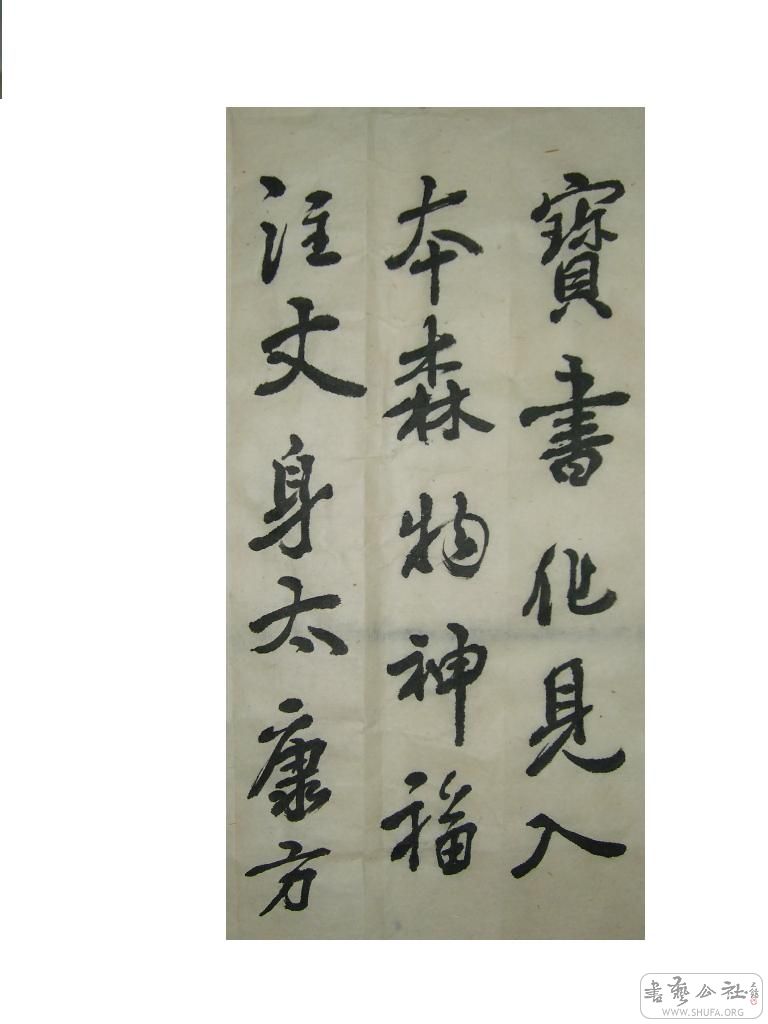 寳書化見入
本森物神福
注文身太康方
書藝公社
WWW.SHUFA.ORG